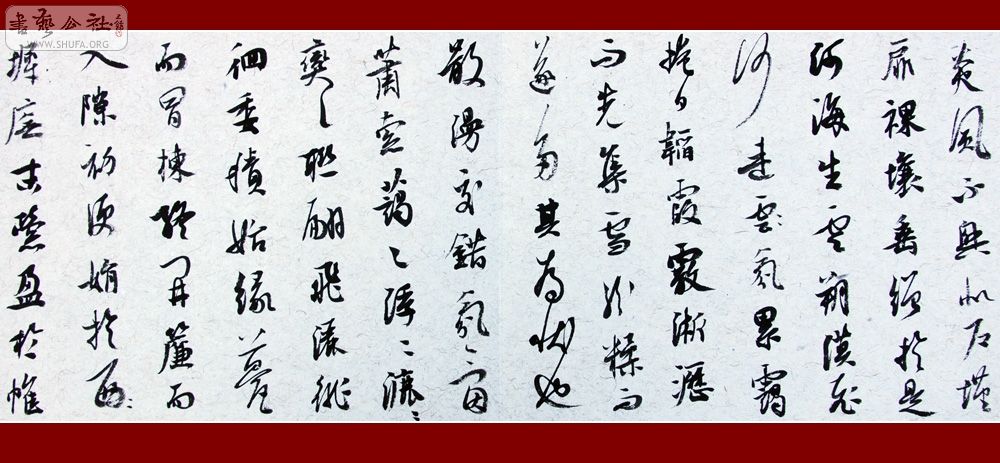 書藝公社
WWW.SHUFA.ORG
炎風不興北戶墐
扉裸壤垂繒於是
河海生雲朔漠飛
沙連雲氛累靄
掩日韜霞霰淅瀝
而先集雪紛糅而
遂多其為狀也
散漫交錯氛氳
蕭索藹〻浮〻瀌〻
奕〻聯翩飛灑徘
徊委積始緣甍
而冒棟終開簾而
入隙初便娟於
墀廡末縈盈於帷